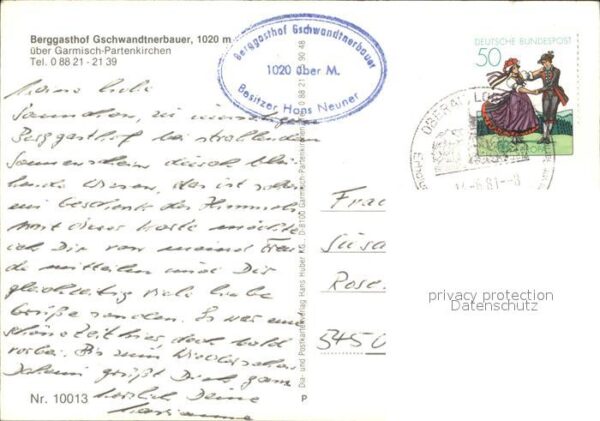 Berggasthof Gschwandtnerbauer, 1020 m
über Garmisch-Partenkirchen
Tel. 0 88 21 - 21 39
Berggasthof Gschwandtnerbauer
1020 über M.
Besitzer Hans Neuner
DEUTSCHE BUNDESPOST
50
OBERA
-6.81-8
Meine liebe
Berggasthof bei strahlendem
Sonnenschein durch blü-
hende Wiesen, das ist schon
ein Geschenk des Himmels
Mit dieser Karte möchte
ich Dir von meiner Freu-
de mitteilen und Dir
gleichzeitig viele liebe
Grüße senden. Es war eine
schöne Zeit hier, doch bald
vorbei. Bis zum Wiedersehen
Daheim grüßt Dich ganz
herzlich Deine
Marianne
Dia- und Postkartenverlag Hans Huber KG, D-8100 Garmisch-Partenkirchen
Frau
Susa
Rose
3450
privacy protection
Datenschutz
Nr. 10013
P